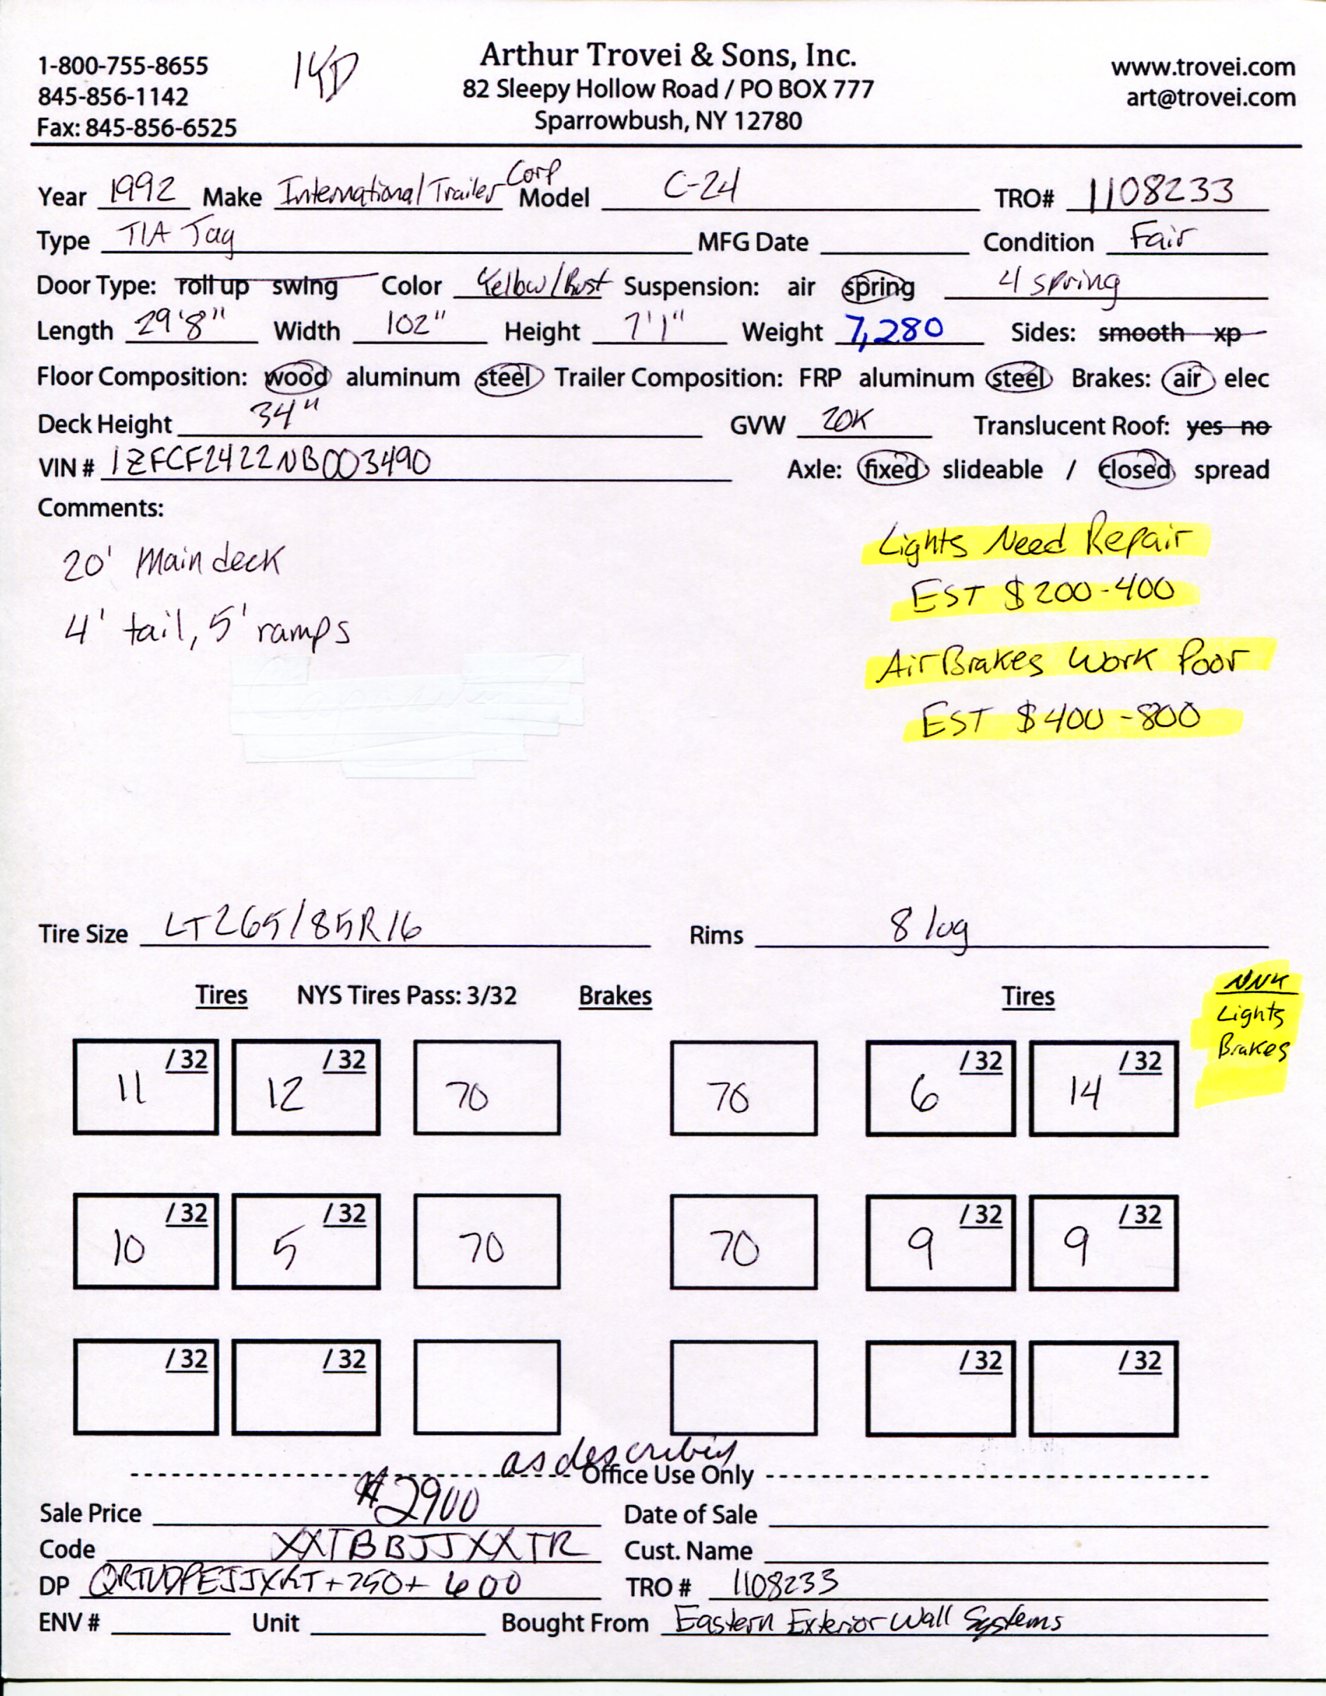 1-800-755-8655
845-856-1142
Fax: 845-856-6525
Arthur Trovei & Sons, Inc.
82 Sleepy Hollow Road / PO BOX 777
Sparrowbush, NY 12780
www.trovei.com
art@trovei.com
Year 1992 Make International Trailer Corp Model C-24 TRO# 1108233
Type TIA Tag MFG Date Condition Fair
Door Type: roll up swing Color Yellow/Rust Suspension: air spring 4 spring
Length 29'8" Width 102" Height 7'1" Weight 7,280 Sides: smooth xp
Floor Composition: wood aluminum steel Trailer Composition: FRP aluminum steel Brakes: air elec
Deck Height 34" GVW 20K Translucent Roof: yes no
VIN # 1ZFCF2422NB003490 Axle: fixed slideable / closed spread
Comments:
20' Main deck
4' tail, 5' ramps
Lights Need Repair
EST $200-400
Air Brakes Work Poor
EST $400-800
Tire Size LT265/85R16 Rims 8 lug
Tires NYS Tires Pass: 3/32 Brakes Tires
NNK
Lights
Brakes
11 /32 12 /32 70 70 6 /32 14 /32
10 /32 5 /32 70 70 9 /32 9 /32
/32 /32 /32 /32
as describing
Office Use Only
Sale Price $2900 Date of Sale
Code XXTBBJJXXTR Cust. Name
DP +250+600 TRO # 1108233
ENV # Unit Bought From Eastern Exterior Wall Systems